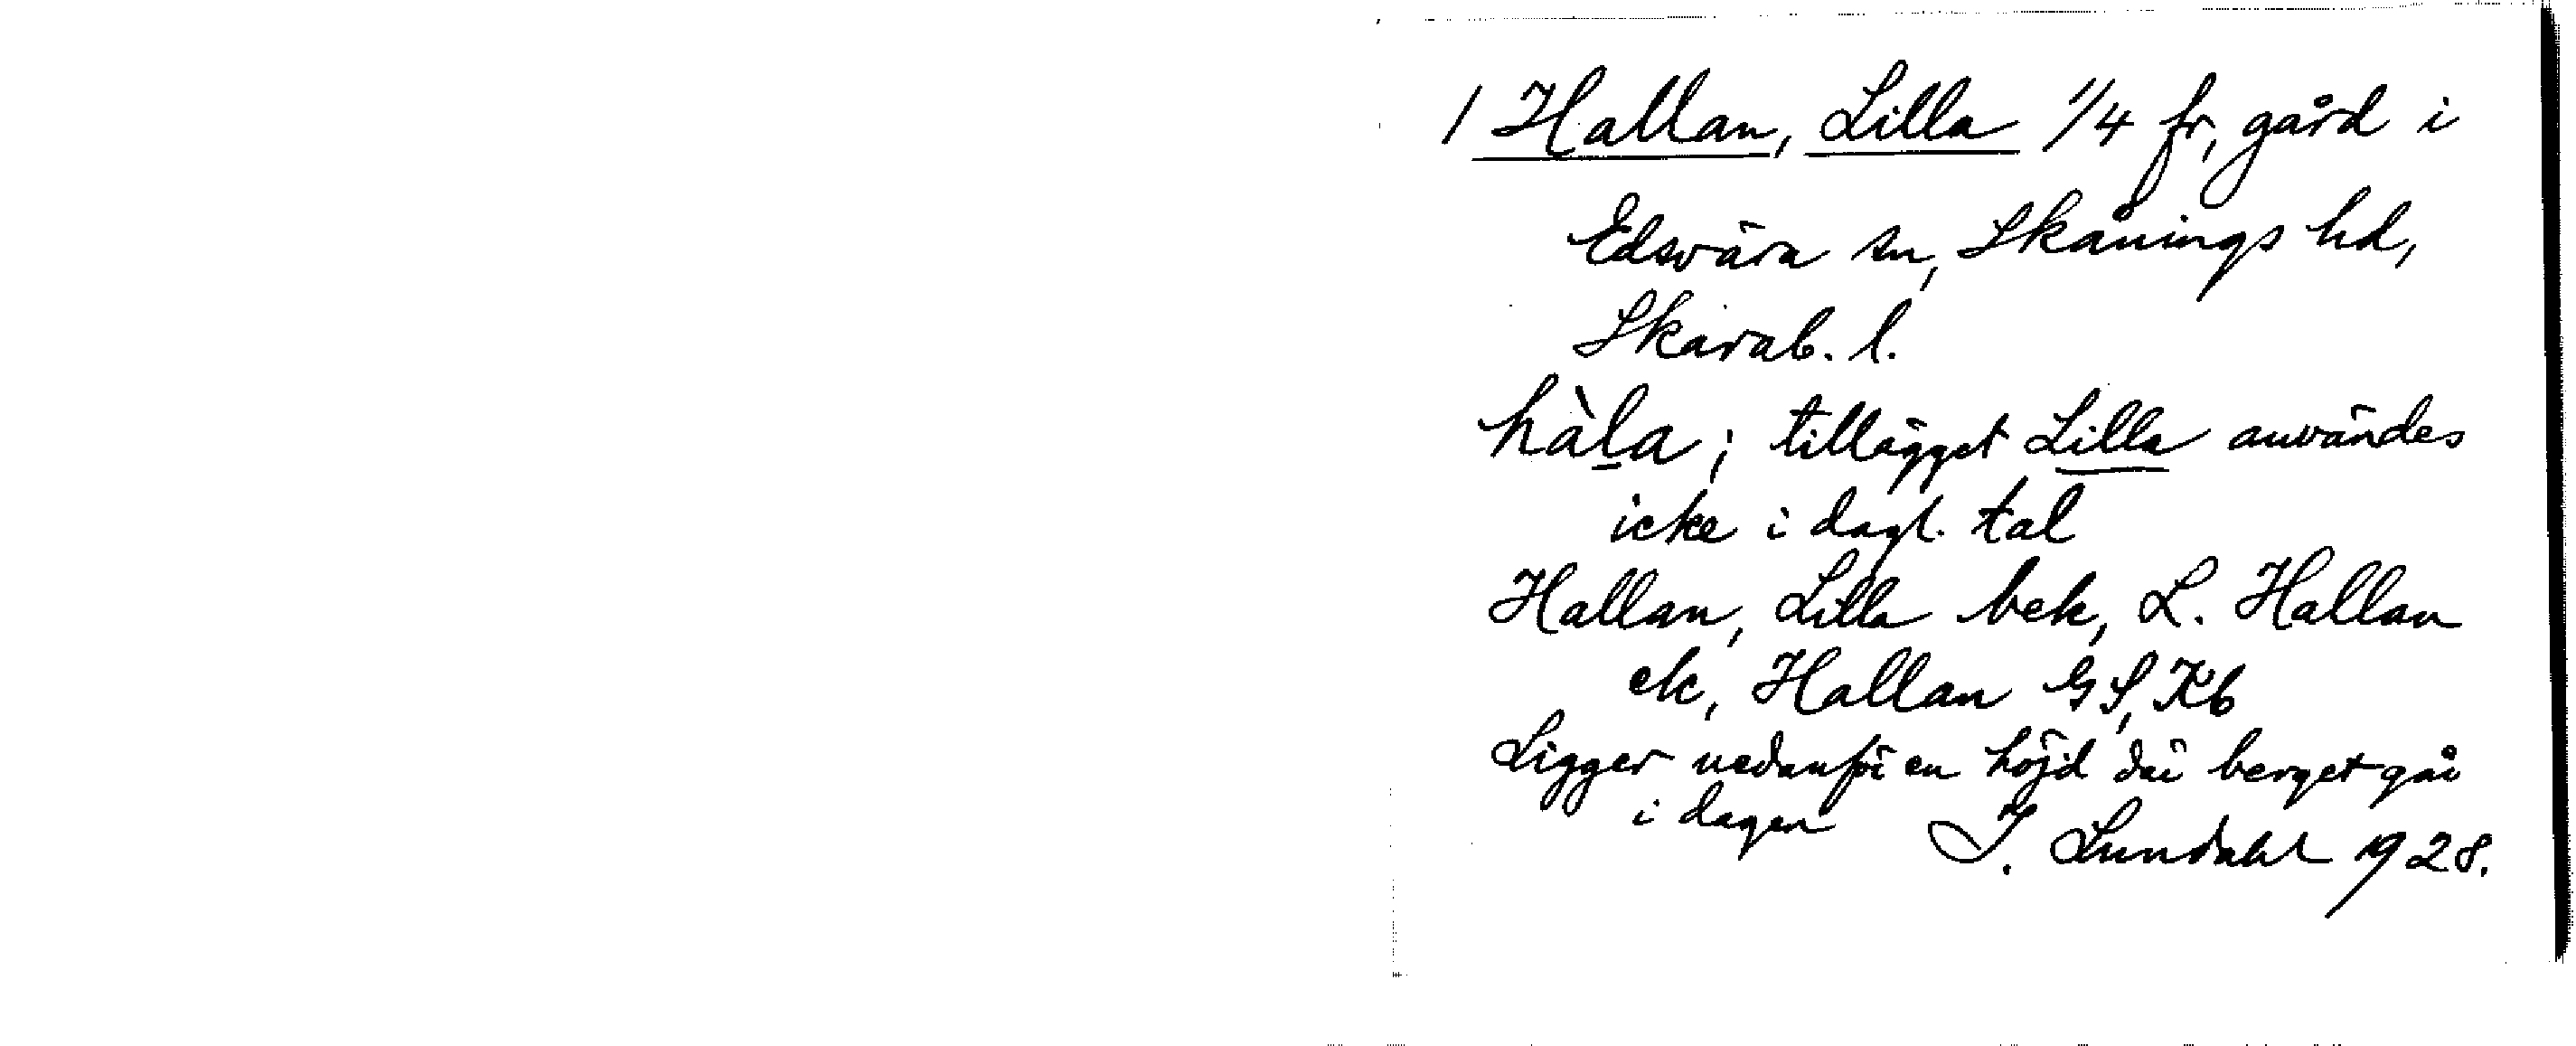 / Hallan, Lilla 1/4 fr, gård i
Edsvära sn, Skånings hd,
Skarab. l.
hàl̠a; tillägget Lilla användes
icke i dagl. tal
Hallan, Lilla bek, L. Hallan
ek, Hallan GS, Kb
Ligger nedanför en höjd där berget går
i dagen I. Lundahl 1928.